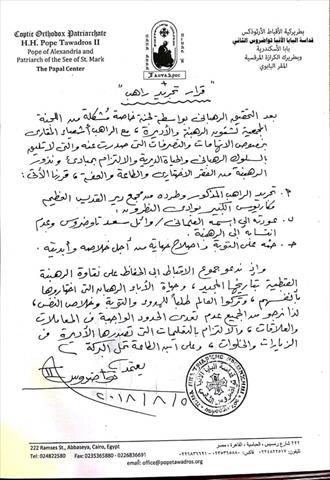 Coptic Orthodox Patriarchate
H.H. Pope Tawadros II
Pope of Alexandria and
Patriarch of the See of St. Mark
The Papal Center
بطريركية الأقباط الأرثوذكس
قداسة البابا الأنبا تواضروس الثاني
بابا الأسكندرية
وبطريرك الكرازة المرقسية
المقر البابوي
" قرار تجريد راهب "
بعد التحقيق الرهباني بواسطة لجنة خاصة مُشكلة من اللجنة
المجمعية لشئون الرهبنة والأديرة، مع الراهب أشعياء المقاري
بخصوص الاتهامات والتصرفات التي صدرت عنه والتي لا تليق
بالسلوك الرهباني والحياة الديرية والالتزام بمبادئ ونذور
الرهبنة من الفقر الاختياري والطاعة والعفة، قررنا الآتي:
تجريد الراهب المذكور وطرده من مجمع دير القديس العظيم
مكاريوس الكبير بوادي النطرون.
عودته إلى اسمه العلماني / وائل سعد تاوضروس وعدم
انتسابه إلى الرهبنة.
حثه على التوبة وإصلاح حياته من أجل خلاصه وأبديته.
وإذ ندعو جموع الأقباط إلى الحفاظ على نقاوة الرهبنة
القبطية بتاريخها المجيد، وحياة الآباء الرهبان التي اختاروها
بأنفسهم، وتركوا العالم طلباً للهدوء والتوبة وخلاص النفس،
لذا نرجو من الجميع عدم تعدي الحدود الواجبة في المعاملات
والعلاقات، والالتزام بالتعليمات التي تصدرها الأديرة في
الزيارات والخلوات، وعلى ابن الطاعة تحل البركة
يعتمد
تواضروس
٢٠١٨/٨/٥
222 Ramses St., Abbaseya, Cairo, Egypt
Tel: 024822580 Fax: 0235365880 - 0226836691
email: office@popetawadros.org
٢٢٢ شارع رمسيس ، العباسية ، القاهرة ، مصر